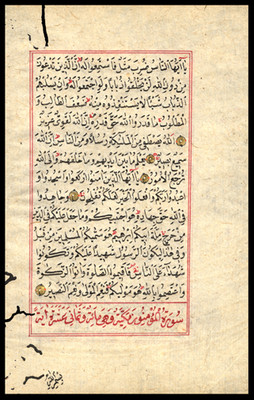 يَا أَيُّهَا النَّاسُ ضُرِبَ مَثَلٌ فَاسْتَمِعُوا لَهُ إِنَّ الَّذِينَ تَدْعُونَ
مِنْ دُونِ اللَّهِ لَنْ يَخْلُقُوا ذُبَابًا وَلَوِ اجْتَمَعُوا لَهُ وَإِنْ يَسْلُبْهُمُ
الذُّبَابُ شَيْئًا لَا يَسْتَنْقِذُوهُ مِنْهُ ضَعُفَ الطَّالِبُ وَ
الْمَطْلُوبُ مَا قَدَرُوا اللَّهَ حَقَّ قَدْرِهِ إِنَّ اللَّهَ لَقَوِيٌّ عَزِيزٌ
اللَّهُ يَصْطَفِي مِنَ الْمَلٰئِكَةِ رُسُلًا وَمِنَ النَّاسِ إِنَّ اللَّهَ
سَمِيعٌ بَصِيرٌ يَعْلَمُ مَا بَيْنَ أَيْدِيهِمْ وَمَا خَلْفَهُمْ وَإِلَى اللَّهِ
تُرْجَعُ الْأُمُورُ يَا أَيُّهَا الَّذِينَ آمَنُوا ارْكَعُوا وَاسْجُدُوا وَ
اعْبُدُوا رَبَّكُمْ وَافْعَلُوا الْخَيْرَ لَعَلَّكُمْ تُفْلِحُونَ وَجَاهِدُوا
فِي اللَّهِ حَقَّ جِهَادِهِ هُوَ اجْتَبٰيكُمْ وَمَا جَعَلَ عَلَيْكُمْ فِي الدِّينِ
مِنْ حَرَجٍ مِلَّةَ أَبِيكُمْ إِبْرَاهِيمَ هُوَ سَمّٰيكُمُ الْمُسْلِمِينَ مِنْ قَبْلُ
وَفِي هَذَا لِيَكُونَ الرَّسُولُ شَهِيدًا عَلَيْكُمْ وَتَكُونُوا
شُهَدَاءَ عَلَى النَّاسِ فَأَقِيمُوا الصَّلٰوةَ وَآتُوا الزَّكٰوةَ
وَاعْتَصِمُوا بِاللَّهِ هُوَ مَوْلٰيكُمْ فَنِعْمَ الْمَوْلَى وَنِعْمَ النَّصِيرُ
سورة المؤمنون مكية وهي مائة وثماني عشرة آية